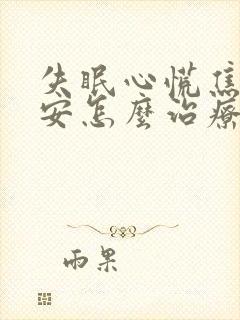 失眠心慌焦
安怎麼治療
雨果